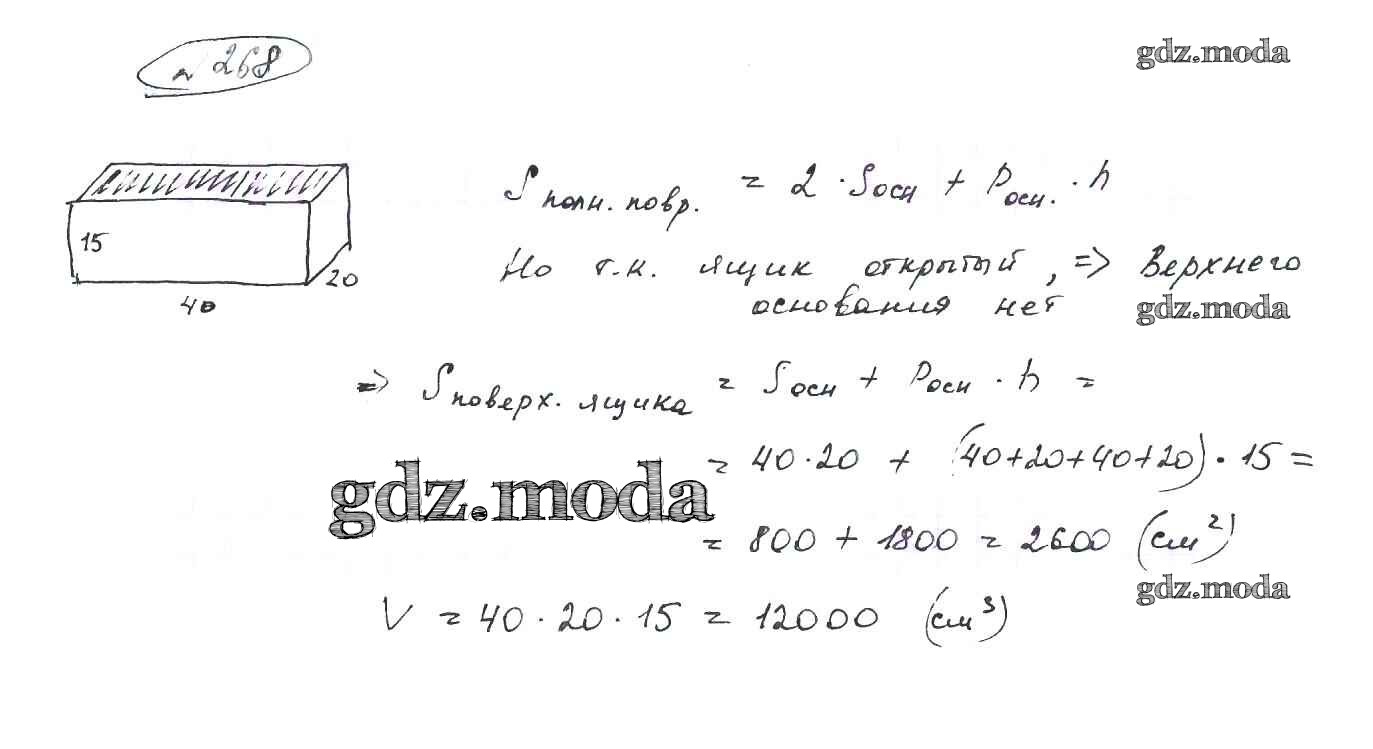 № 268
gdz.moda
15
20
40
S полн. повр. = 2 · Sосн + Pосн. · h
Но т.к. ящик открытый, => Верхнего
основания нет
gdz.moda
=> S поверх. ящика = Sосн + Pосн · h =
= 40·20 + (40+20+40+20) · 15 =
gdz.moda
= 800 + 1800 = 2600 (см²)
gdz.moda
V = 40 · 20 · 15 = 12000 (см³)